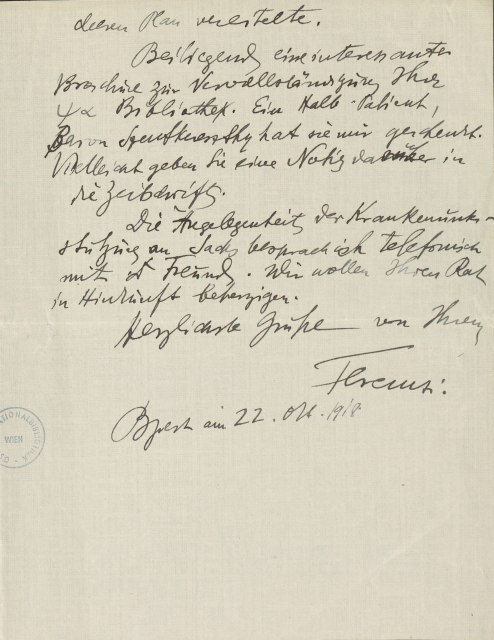 diesen Plan vereitelte.
Beiliegend eine interessante
Broschüre zur Vervollständigung Ihrer
ψα Bibliothek. Ein Halb-Patient,
Baron hat sie mir geschenkt.
Vielleicht geben Sie eine Notiz darüber in
die Zeitschrift.
Die Angelegenheit der Krankenunter-
stützung an Sachs besprach ich telefonisch
mit Dr Freund. Wir wollen Ihren Rat
in Hinkunft beherzigen.
Herzlichste Grüße von Ihrem
Ferenczi.
Bpest am 22. Okt. 1918
NATIONALBIBLIOTHEK
WIEN